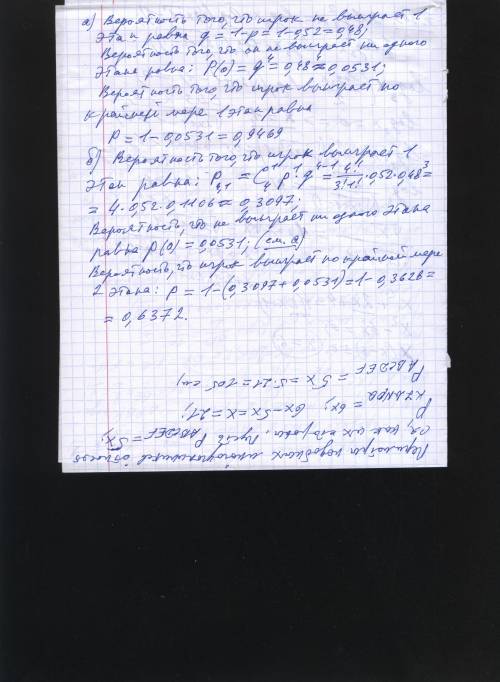 а) Вероятность того, что игрок не выиграет 1
этап равна q = 1-p = 1-0,52 = 0,48;
Вероятность того, что он не выиграет ни одного
этапа равна: P(0) = q⁴ = 0,48⁴ ≈ 0,0531;
Вероятность того, что игрок выиграет по
крайней мере 1 этап равна
P = 1-0,0531 = 0,9469
б) Вероятность того, что игрок выиграет 1
этап равна: P₄,₁ = C₄¹ p¹ q⁴⁻¹ = 4!/3!1! · 0,52 · 0,48³ =
= 4 · 0,52 · 0,1106 ≈ 0,3097;
Вероятность, что не выиграет ни одного этапа
равна P(0) = 0,0531; (см. а)
Вероятность, что игрок выиграет по крайней мере
2 этапа: p = 1-(0,3097+0,0531) = 1-0,3628 =
= 0,6372.
Периметры подобных многоугольников относят
ся, как их стороны. Пусть P ABCDEF = 5x;
P = 6x; 6x-5x = x = 21;
P ABCDEF = 5x = 5·21 = 105 см)